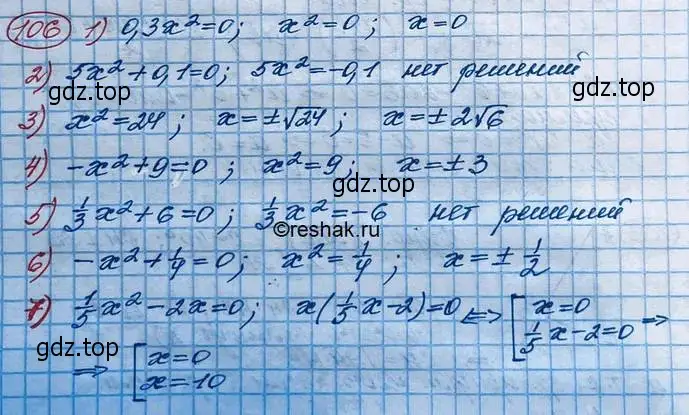 106 1) 0,3x²=0; x²=0; x=0
2) 5x²+0,1=0; 5x²=-0,1 нет решений
гдз.top гдз.top
3) x²=24; x=±√24; x=±2√6
4) -x²+9=0; x²=9; x=±3
гдз.top
5) 1/3x²+6=0; 1/3x²=-6 нет решений
©reshak.ru
6) -x²+1/4=0; x²=1/4; x=±1/2
7) 1/5x²-2x=0; x(1/5x-2)=0 ⇔ [x=0
1/5x-2=0 ⇒
гдз.top гдз.top
⇒ [x=0
x=10